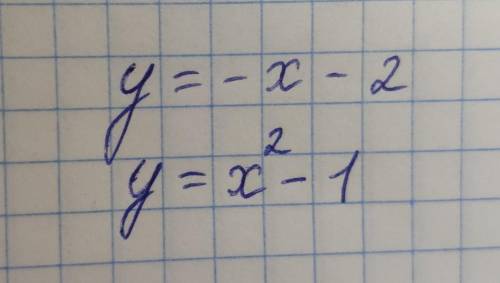 y = -x - 2
y = x² - 1